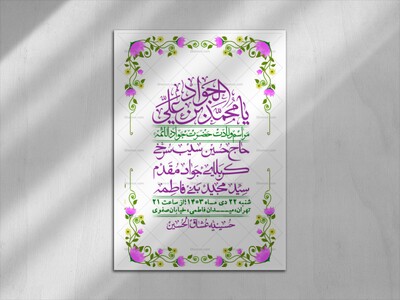 یا محمد بن علی الجواد
مراسم ولادت حضرت جواد الائمه
حاج حسین سیب سرخی
کربلایی جواد مقدم
سید مجید بنی فاطمه
شنبه ۲۲ دی ماه ۱۴۰۳ از ساعت ۲۱
تهران، میدان فاطمی، خیابان صفوی
حسینیه عشاق الحسین